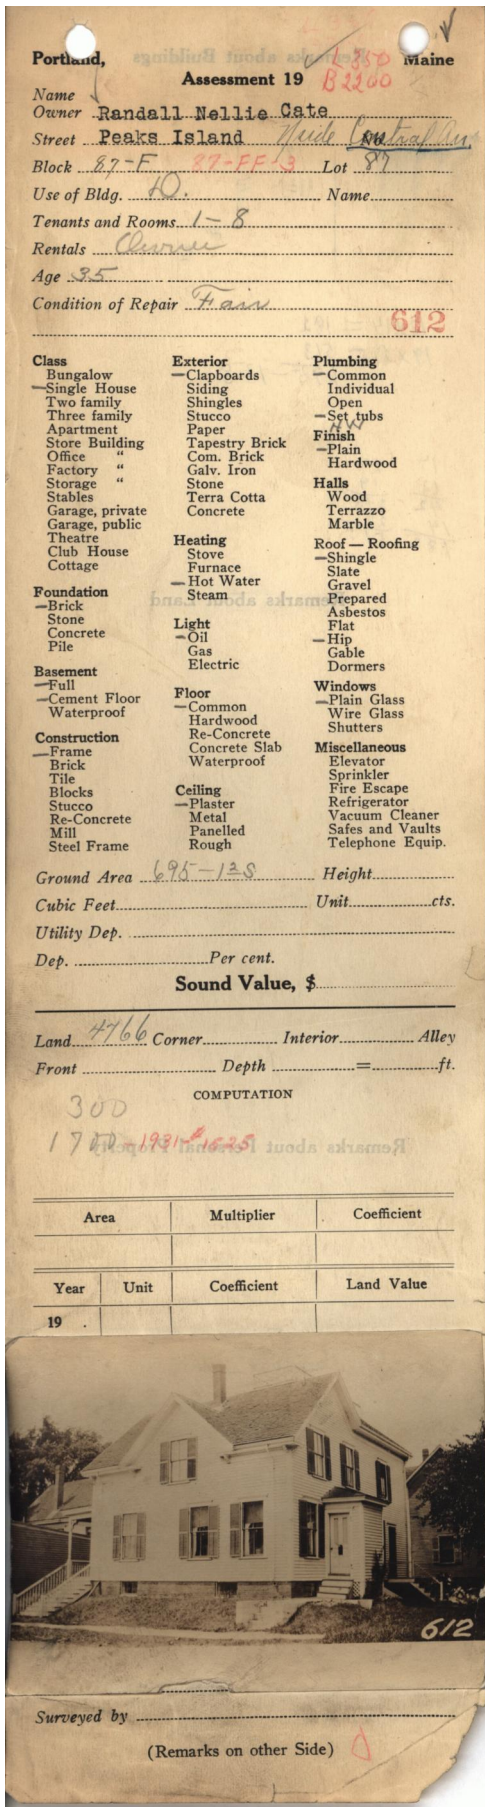 L 350
Portland, Maine
B 2200
Assessment 19
Name
Owner Randall Nellie Cate
Street Peaks Island Central Av
Block 87-F 87-FF-3 Lot 87
Use of Bldg. D. Name
Tenants and Rooms 1-8
Rentals Owner
Age 35
Condition of Repair Fair
612
Class
Bungalow
Single House
Two family
Three family
Apartment
Store Building
Office "
Factory "
Storage "
Stables
Garage, private
Garage, public
Theatre
Club House
Cottage
Foundation
Brick
Stone
Concrete
Pile
Basement
Full
Cement Floor
Waterproof
Construction
Frame
Brick
Tile
Blocks
Stucco
Re-Concrete
Mill
Steel Frame
Exterior
Clapboards
Siding
Shingles
Stucco
Paper
Tapestry Brick
Com. Brick
Galv. Iron
Stone
Terra Cotta
Concrete
Heating
Stove
Furnace
Hot Water
Steam
Light
Oil
Gas
Electric
Floor
Common
Hardwood
Re-Concrete
Concrete Slab
Waterproof
Ceiling
Plaster
Metal
Panelled
Rough
Plumbing
Common
Individual
Open
Set tubs
Finish
Plain
Hardwood
Halls
Wood
Terrazzo
Marble
Roof — Roofing
Shingle
Slate
Gravel
Prepared
Asbestos
Flat
Hip
Gable
Dormers
Windows
Plain Glass
Wire Glass
Shutters
Miscellaneous
Elevator
Sprinkler
Fire Escape
Refrigerator
Vacuum Cleaner
Safes and Vaults
Telephone Equip.
Ground Area 695-1 2S Height
Cubic Feet Unit cts.
Utility Dep.
Dep. Per cent.
Sound Value, $
Land 4766 Corner Interior Alley
Front Depth = ft.
COMPUTATION
300
1700-1931-#1625
Area Multiplier Coefficient
Year Unit Coefficient Land Value
19 .
612
Surveyed by
(Remarks on other Side)